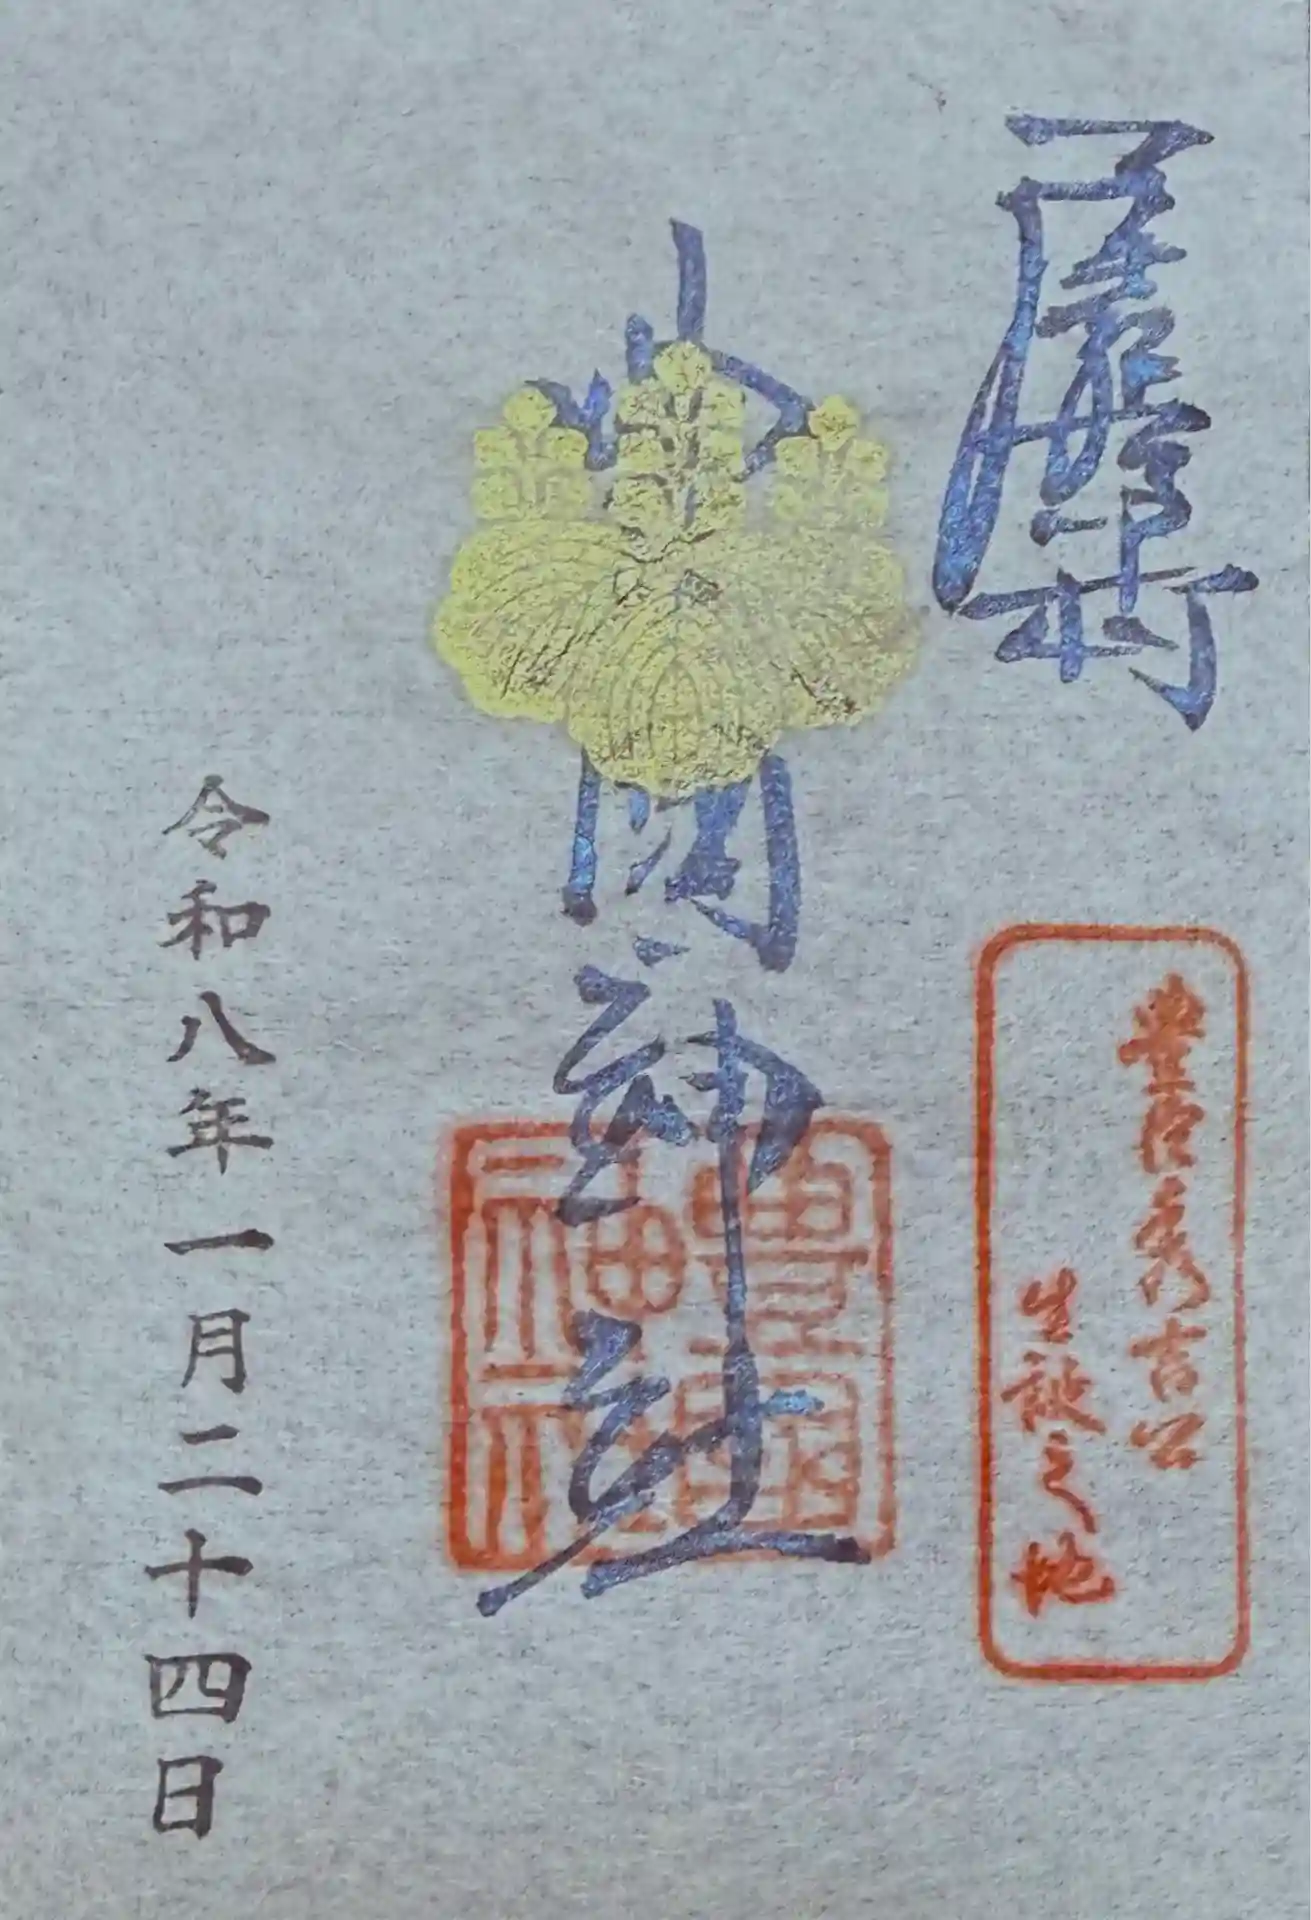 豊臣秀吉公
生誕之地
神社
豊國
神社
令和八年一月二十四日